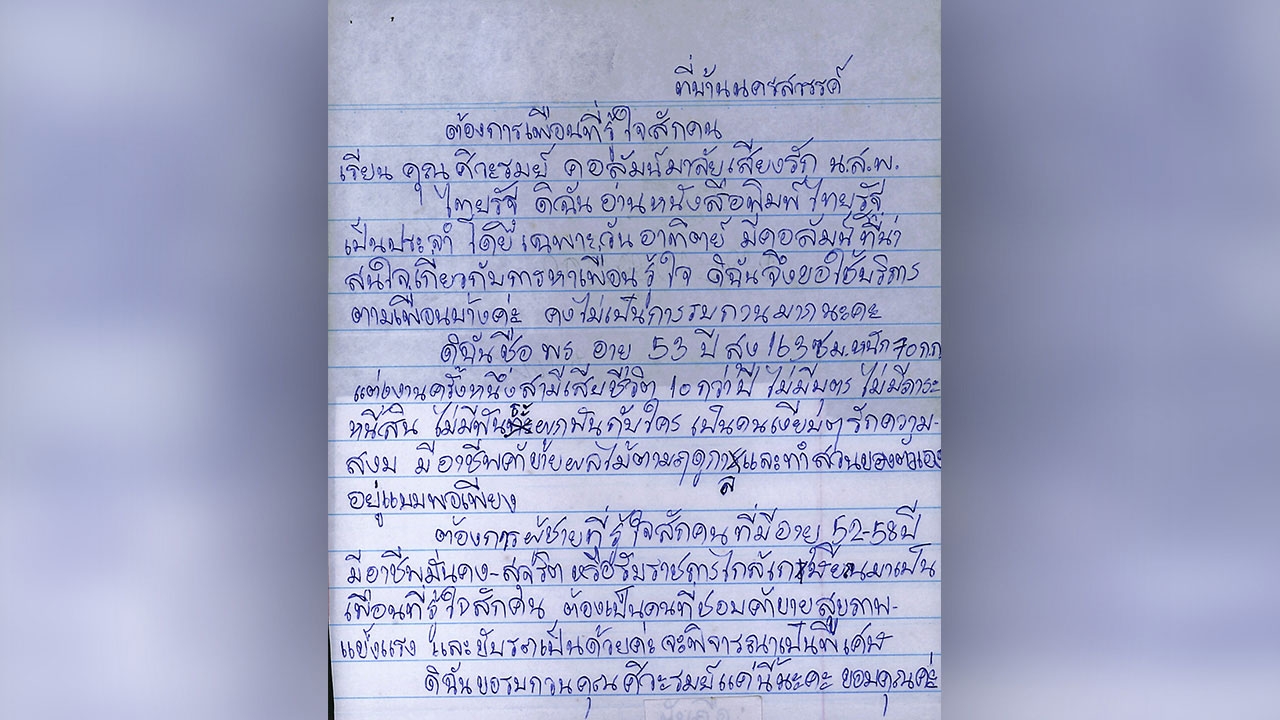 ที่บ้านนครสวรรค์
ต้องการเพื่อนที่รู้ใจสักคน
เรียน คุณศิวะรมย์ คอลัมน์มาลัยเสี่ยงรัก น.ส.พ.
ไทยรัฐ ดิฉันอ่านหนังสือพิมพ์ไทยรัฐ
เป็นประจำ เฉพาะวันอาทิตย์ มีคอลัมน์ที่น่า
สนใจเกี่ยวกับการหาเพื่อนรู้ใจ ดิฉันจึงขอใช้บริการ
ตามเพื่อนบ้างค่ะ คงไม่เป็นการรบกวนมากนะคะ
ดิฉันชื่อ พร อายุ 53 ปี สูง 163 ซม. หนัก 70 กก
แต่งงานครั้งหนึ่งสามีเสียชีวิต 10 กว่าปี ไม่มีบุตร ไม่มีภาระ
หนี้สิน ไม่มีพันธะผูกพันกับใคร เป็นคนเงียบๆ รักความ-
สงบ มีอาชีพค้าขายผลไม้ตามฤดูกาลและทำสวนของตัวเอง
อยู่แบบพอเพียง
ต้องการผู้ชายที่รู้ใจสักคน ที่มีอายุ 52-58 ปี
มีอาชีพมั่นคง-สุจริต หรือรับราชการใกล้เกษียณมาเป็น
เพื่อนที่รู้ใจสักคน ต้องเป็นคนที่ชอบค้าขายสุขภาพ-
แข็งแรง และขับรถเป็นด้วยค่ะ จะพิจารณาเป็นพิเศษ
ดิฉันขอรบกวนคุณศิวะรมย์แค่นี้นะคะ ขอบคุณค่ะ